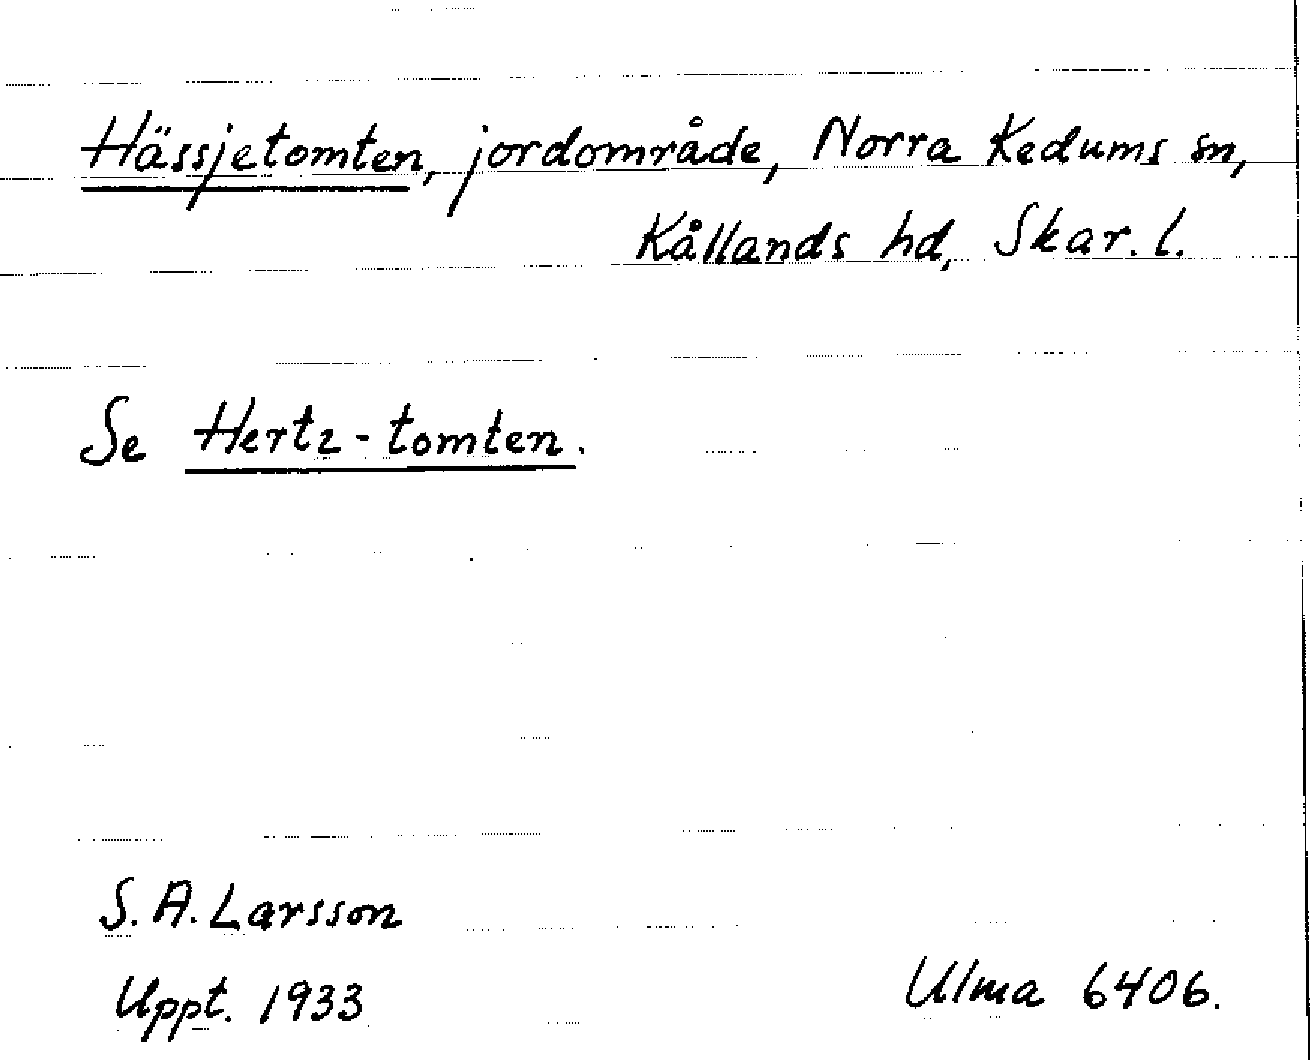 Hässjetomten, jordområde, Norra Kedums sn,
Kållands hd, Skar. l.
Se Hertz-tomten.
S. A. Larsson
Uppt. 1933
Ulma 6406.